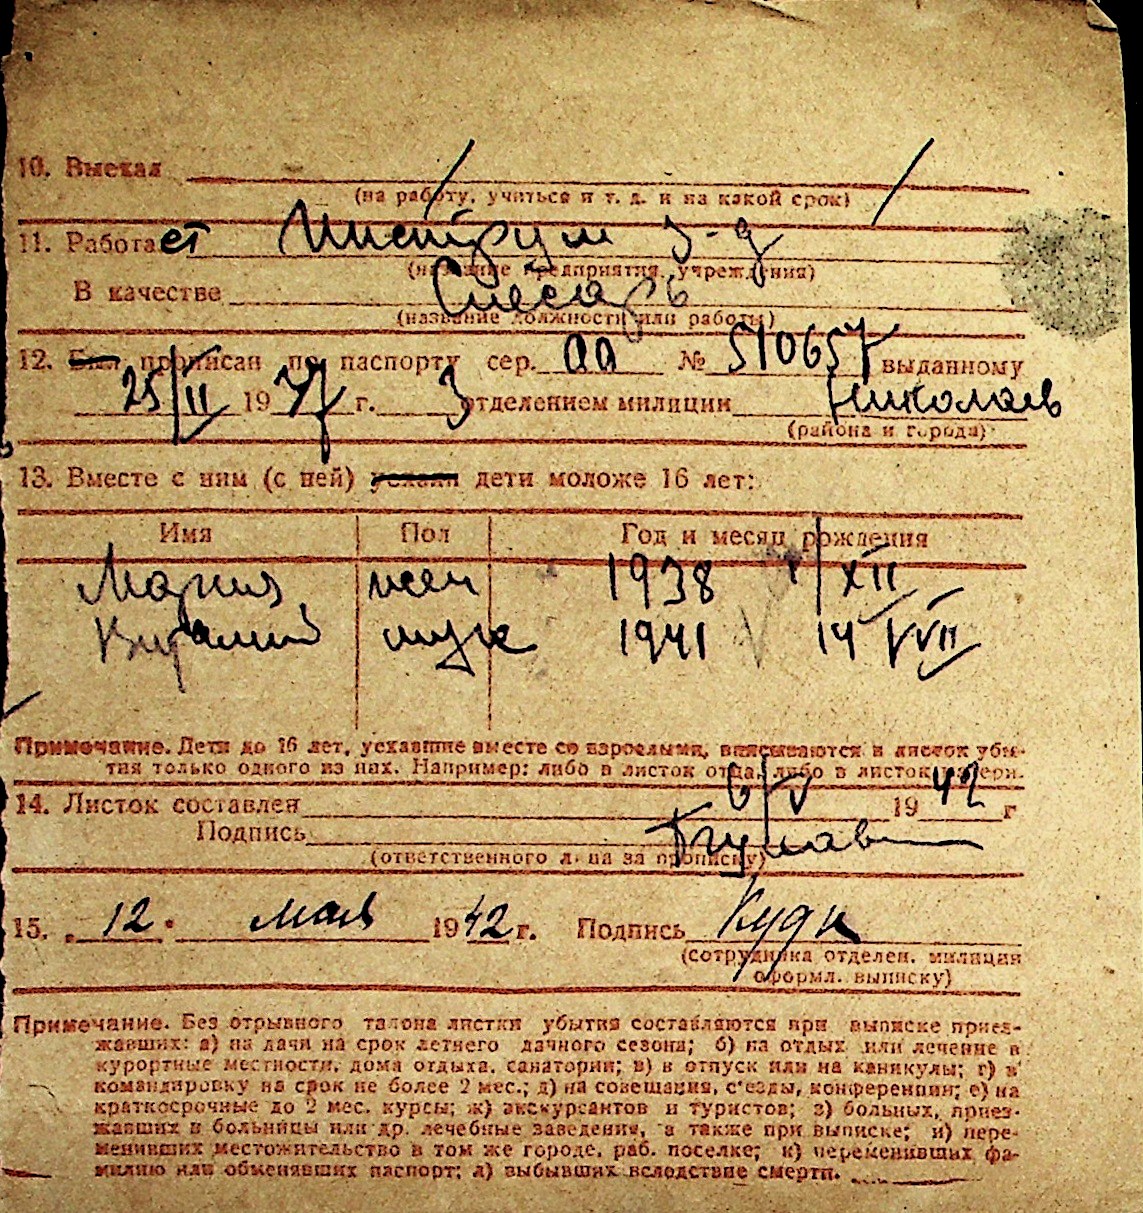 10. Выехал
(на работу, учиться и т. д. и на какой срок)
11. Работает Инструм з-д
(название предприятия, учреждения)
В качестве Слесарь
(название должности или работы)
12. Был прописан по паспорту сер. аа № 510657 выданному
25/II 1937 г. 3 отделением милиции Николаев
(района и города)
13. Вместе с ним (с ней) уехали дети моложе 16 лет:
Имя Пол Год и месяц рождения
Мария жен 1938 XII
Виталий муж 1941 14 VII
Примечание. Дети до 16 лет, уехавшие вместе со взрослыми, вписываются в листок убы-
тия только одного из них. Например: либо в листок отца, либо в листок матери.
14. Листок составлен 6/V 1942 г
Подпись
(ответственного лица за прописку)
15. 12 мая 1942 г. Подпись
(сотрудника отделен. милиции
оформл. выписку)
Примечание. Без отрывного талона листки убытия составляются при выписке приез-
жавших: а) на дачи на срок летнего дачного сезона; б) на отдых или лечение в
курортные местности, дома отдыха, санатории; в) в отпуск или на каникулы; г) в
командировку на срок не более 2 мес.; д) на совещания, с'езды, конференции; е) на
краткосрочные до 2 мес. курсы; ж) экскурсантов и туристов; з) больных, приез-
жавших в больницы или др. лечебные заведения, а также при выписке; и) пере-
менивших местожительство в том же городе, раб. поселке; к) переменивших фа-
милию или обменивших паспорт; л) выбывших вследствие смерти.